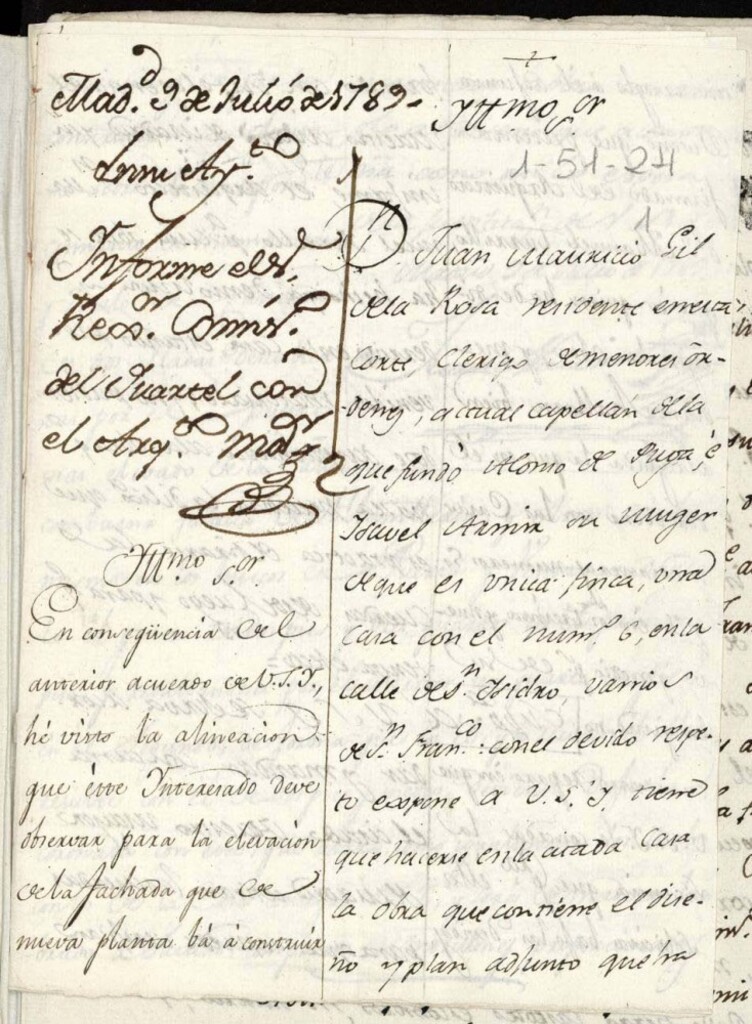 Mad.d 9 de Julio de 1789.
En me Ay.to
Informe el S.
Rex.or Comis.o
del Quartel con
el Arq.to m.or
Yttmo. S.or
En conseqüencia del
anterior acuerdo de V.S.Y.,
hé visto la alineacion
que éste Interesado deve
observar para la elevación
de la fachada que de
nueva planta bá á construir
Yttmo S.or
1-51-24
1
D.n Juan Mauricio Gil
de la Rosa residente en esta
Corte, Clerigo de menores òr-
denes, actual capellán de la
que fundó Alonso de Puga, è
Isavel su muger
de que es unica finca, una
casa con el num.o 6, en la
calle de S.n Isidro, varrio
de S.n Fran.co: con el devido respe-
to expone a V.S.Y. tiene
que hacerse en la citada Casa
la obra que contiene el dise-
ño y plan adjunto que ha